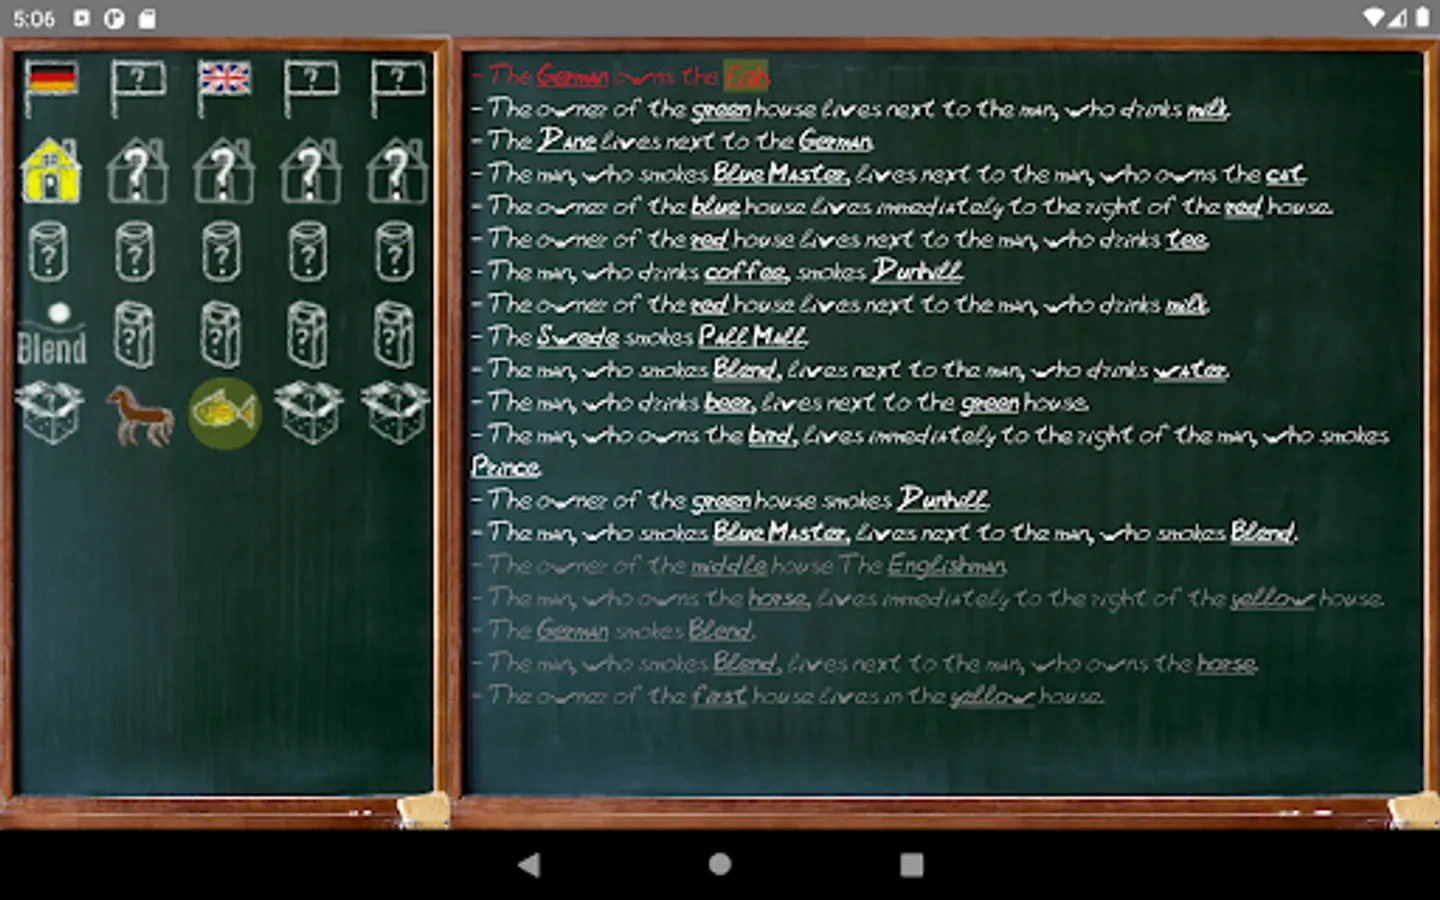 5:06
- The German owns the fish.
- The owner of the green house lives next to the man, who drinks milk.
- The Dane lives next to the German.
- The man, who smokes Blue Master, lives next to the man, who owns the cat.
- The owner of the blue house lives immediately to the right of the red house.
- The owner of the red house lives next to the man, who drinks tee.
- The man, who drinks coffee, smokes Dunhill.
- The owner of the red house lives next to the man, who drinks milk.
- The Swede smokes Pall Mall.
- The man, who smokes Blend, lives next to the man, who drinks water.
- The man, who drinks beer, lives next to the green house.
- The man, who owns the bird, lives immediately to the right of the man, who smokes
Prince.
- The owner of the green house smokes Dunhill.
- The man, who smokes Blue Master, lives next to the man, who smokes Blend.
- The owner of the middle house The Englishman.
- The man, who owns the horse, lives immediately to the right of the yellow house.
- The German smokes Blend.
- The man, who smokes Blend, lives next to the man, who owns the horse.
- The owner of the first house lives in the yellow house.
? ? ?
? ? ? ?
? ? ? ? ?
Blend ? ? ? ?
? ? ?